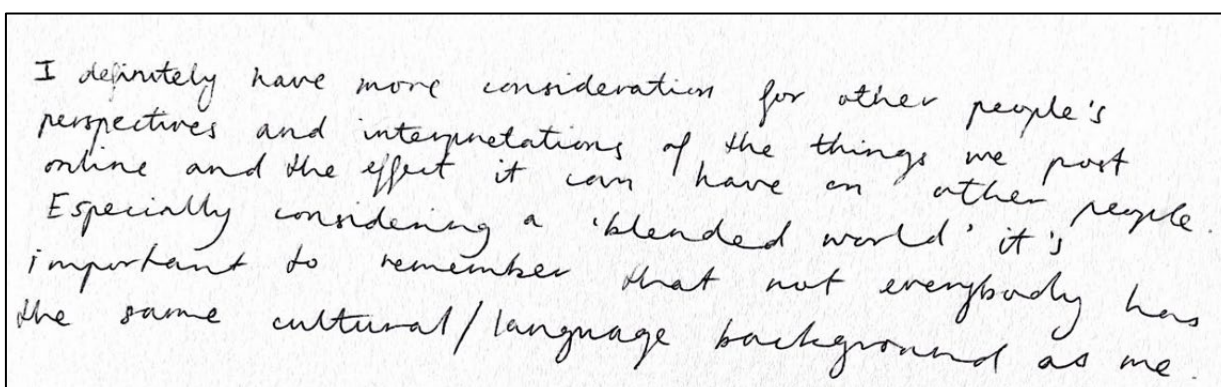 I definitely have more consideration for other people's
perspectives and interpretations of the things we post
online and the effect it can have on other people.
Especially considering a 'blended world' it's
important to remember that not everybody has
the same cultural/language background as me.